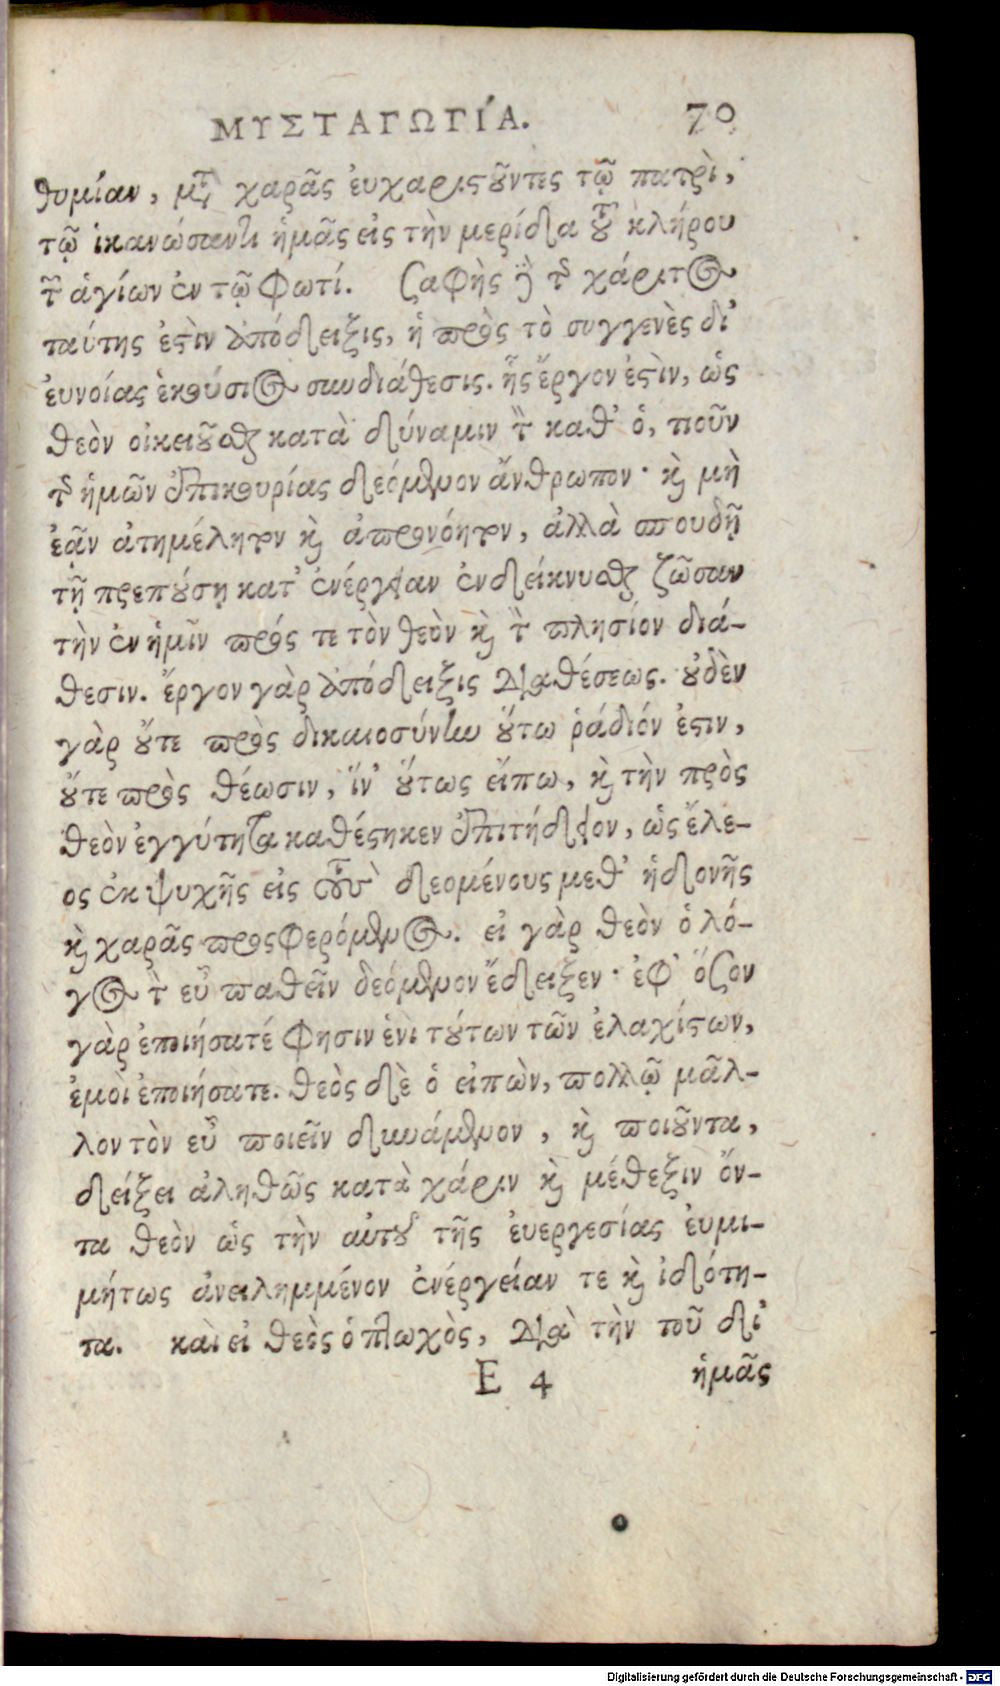 ΜΥΣΤΑΓΩΓΊΑ. 70
θυμίαν, μτ̀ χαρᾶς ἐυχαριστοῦντες τῷ πατρὶ,
τῷ ἱκανώσαντι ἡμᾶς εἰς τὴν μερίδα τοῦ κλήρου
τῶν ἁγίων ἐν τῷ φωτί. Σαφὴς γὸ τῆς χάριτος
ταύτης ἐστὶν ἀπόδειξις, ἡ πρὸς τὸ συγγενὲς δι'
ἐυνοίας ἑκούσιος συνδιάθεσις. ἧς ἔργον ἐστὶν, ὡς
θεὸν οἰκειοῦσθαι κατὰ δύναμιν τὸν καθ' ὁ, τιοῦν
τῆς ἡμῶν ἐπικουρίας δεόμενον ἄνθρωπον· καὶ μὴ
ἐᾷν ἀτημέλητον καὶ ἀπρονόητον, ἀλλὰ σπουδῇ
τῇ πρεπούσῃ κατ' ἐνέργειαν ἐνδείκνυσθαι ζῶσαν
τὴν ἐν ἡμῖν πρός τε τὸν θεὸν καὶ τὸν πλησίον διά-
θεσιν. ἔργον γὰρ ἀπόδειξις διαθέσεως. οὐδὲν
γὰρ οὔτε πρὸς δικαιοσύνην οὕτω ῥάδιόν ἐστιν,
οὔτε πρὸς θέωσιν, ἵν' οὕτως εἴπω, καὶ τὴν πρὸς
θεὸν ἐγγύτητα καθέστηκεν ἐπιτήδειον, ὡς ἔλε-
ος ἐκ ψυχῆς εἰς τοὺς δεομένους μεθ' ἡδονῆς
καὶ χαρᾶς προσφερόμενος. εἰ γὰρ θεὸν ὁ λό-
γος τὸν εὖ παθεῖν δεόμενον ἔδειξεν· ἐφ' ὅσον
γὰρ ἐποιήσατέ φησιν ἑνὶ τούτων τῶν ἐλαχίστων,
ἐμοὶ ἐποιήσατε. θεὸς δὲ ὁ εἰπὼν, πολλῷ μᾶλ-
λον τὸν εὖ ποιεῖν δυνάμενον, καὶ ποιοῦντα,
δείξει ἀληθῶς κατὰ χάριν καὶ μέθεξιν ὄν-
τα θεὸν ὡς τὴν αὐτοῦ τῆς ἐυεργεσίας ἐυμι-
μήτως ἀνειλημμένον ἐνέργείαν τε καὶ ἰδιότη-
τα. καὶ εἰ θεὸς ὁ πτωχὸς, διὰ τὴν τοῦ δι'
Ε 4 ἡμᾶς
Digitalisierung gefördert durch die Deutsche Forschungsgemeinschaft - DFG